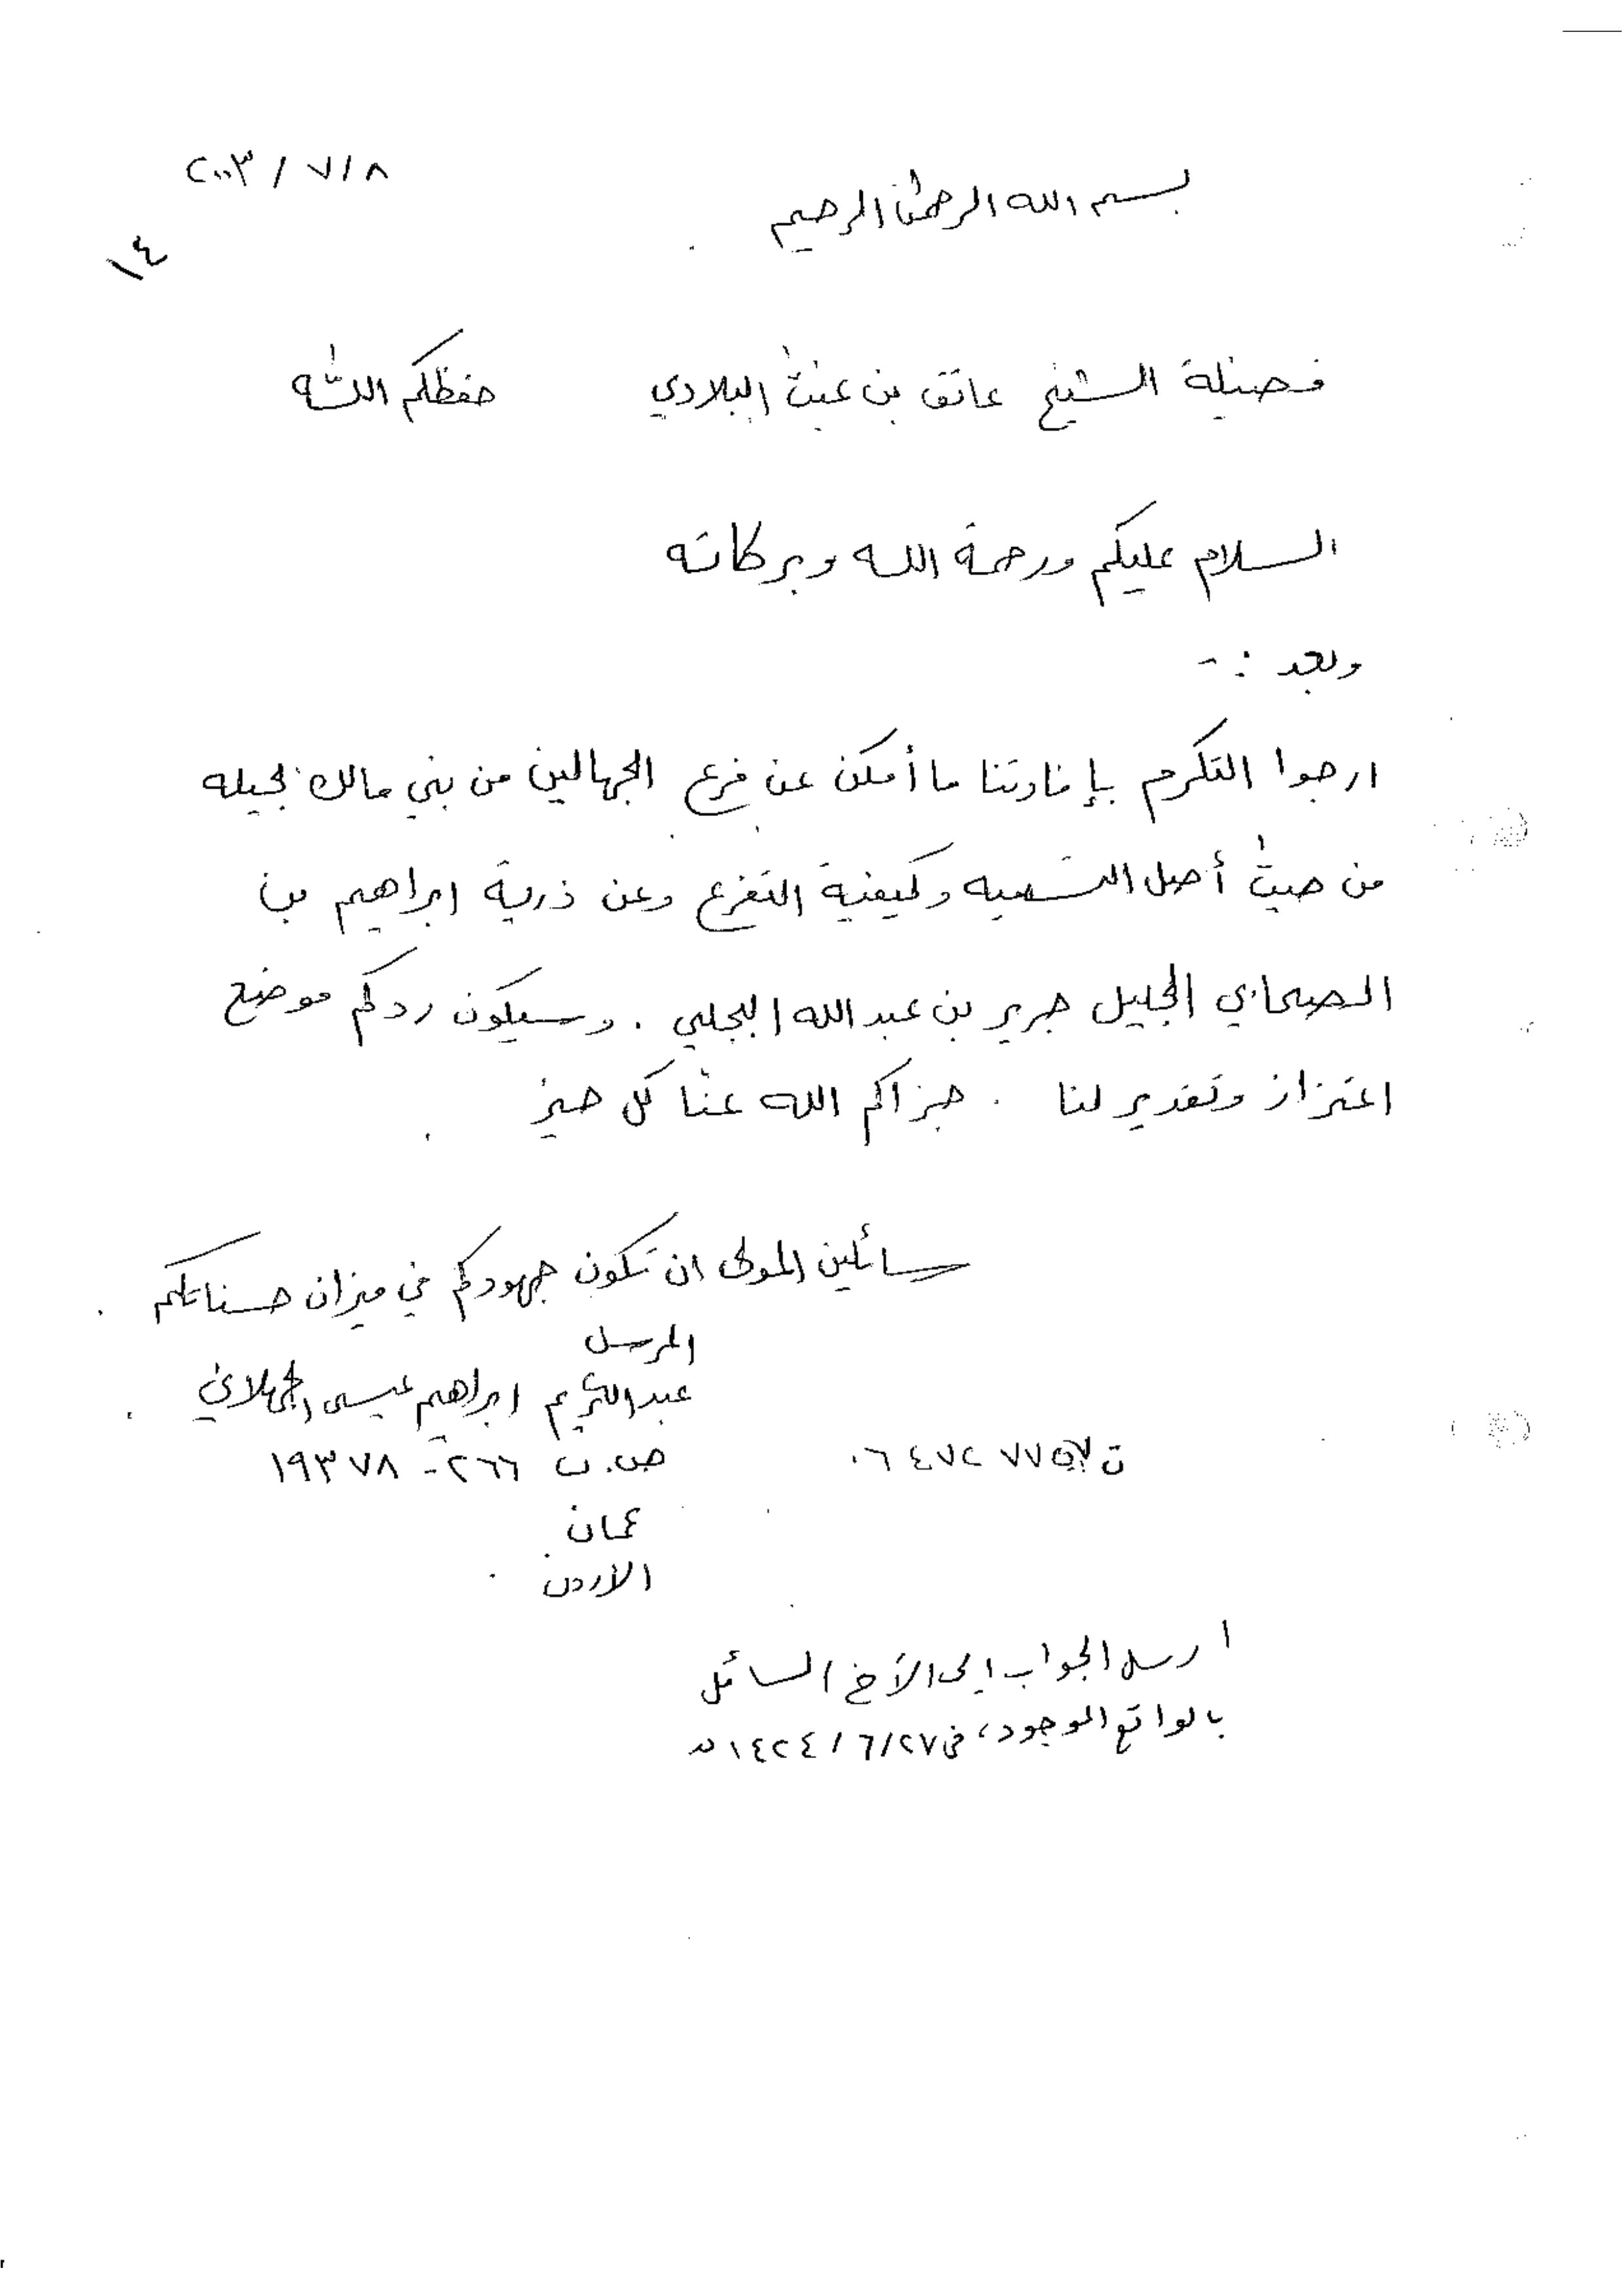 ٢٠٠٣ / ٧ / ٨
بسم الله الرحمن الرحيم
١٤
فضيلة الشيخ عاتق بن غيث البلادي حفظكم اللّه
السلام عليكم ورحمة الله وبركاته
وبعد :-
ارجوا التكرم بإفادتنا ما أمكن عن فرع الجهالين من بني مالك بجيله
من حيث أصل التسميه وكيفية التفرع وعن ذرية ابراهيم بن
الصحابي الجليل جرير بن عبد الله البجلي . وسيكون ردكم موضع
اعتزاز وتقدير لنا . جزاكم الله عنا كل خير
سائلين المولى ان تكون جهودكم في ميزان حسناتكم .
المرسل
عبد الكريم ابراهيم عيسى الجهلاني .
ص. ب ٢٦٦ - ١٩٣٧٨
ت ٠٦ ٤٧٢ ٧٧
عمان
الأردن .
ارسل الجواب إلى الأخ السائل
بالواقع الموجود، في ٦/٢٧ / ١٤٢٤ هـ